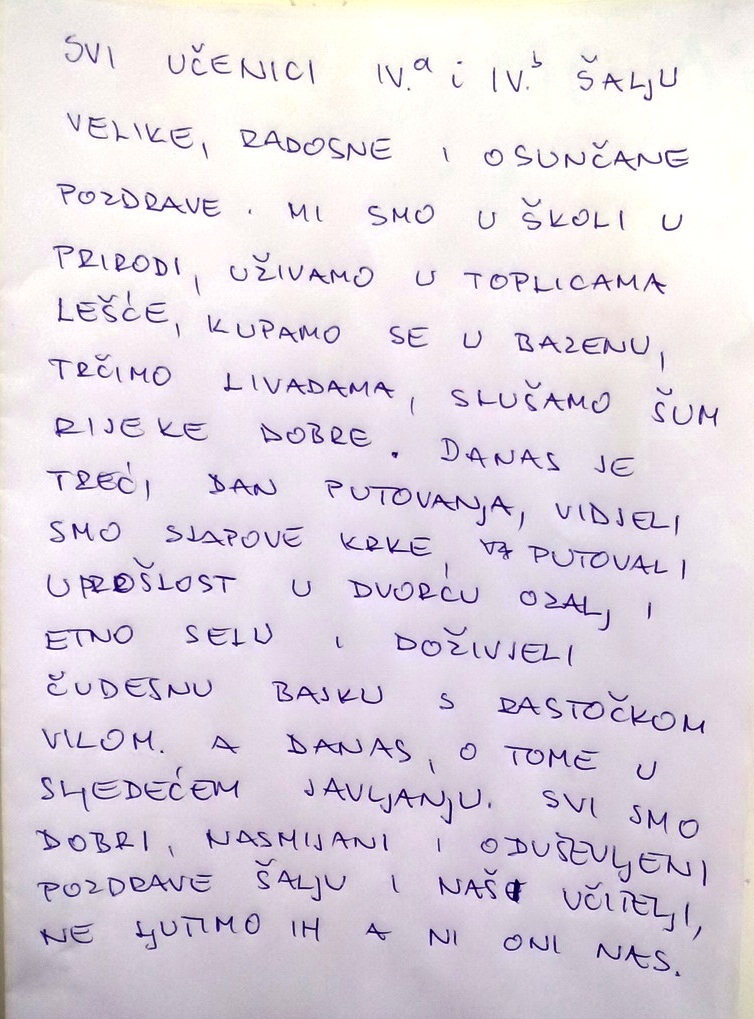 SVI UČENICI IV.a i IV.b ŠALJU
VELIKE, RADOSNE I OSUNČANE
POZDRAVE. MI SMO U ŠKOLI U
PRIRODI, UŽIVAMO U TOPLICAMA
LEŠĆE, KUPAMO SE U BAZENU,
TRČIMO LIVADAMA, SLUŠAMO ŠUM
RIJEKE DOBRE. DANAS JE
TREĆI DAN PUTOVANJA, VIDJELI
SMO SLAPOVE KRKE, PUTOVALI
U PROŠLOST U DVORCU OZALJ I
ETNO SELU I DOŽIVJELI
ČUDESNU BAJKU S RASTOČKOM
VILOM. A DANAS, O TOME U
SLJEDEĆEM JAVLJANJU. SVI SMO
DOBRI, NASMIJANI I ODUŠEVLJENI
POZDRAVE ŠALJU I NAŠI UČITELJI,
NE LJUTIMO IH A NI ONI NAS.